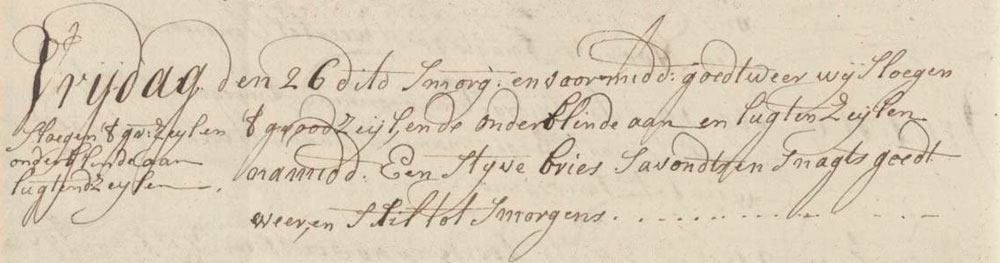 Vrijdag den 26 dito Smorg: en voormidd: goedt weer wij Sloegen
t groodzeijl, ende onderblinde aan en lugten Zeijlen
namidd: Een Styve bries Savondts en Snagts goedt
weer, en Stil tot Smorgens. . . . . . . . . . . .
Sloegen t gro: Zeyl en
onderblinde aan
lugtend Zeylen.